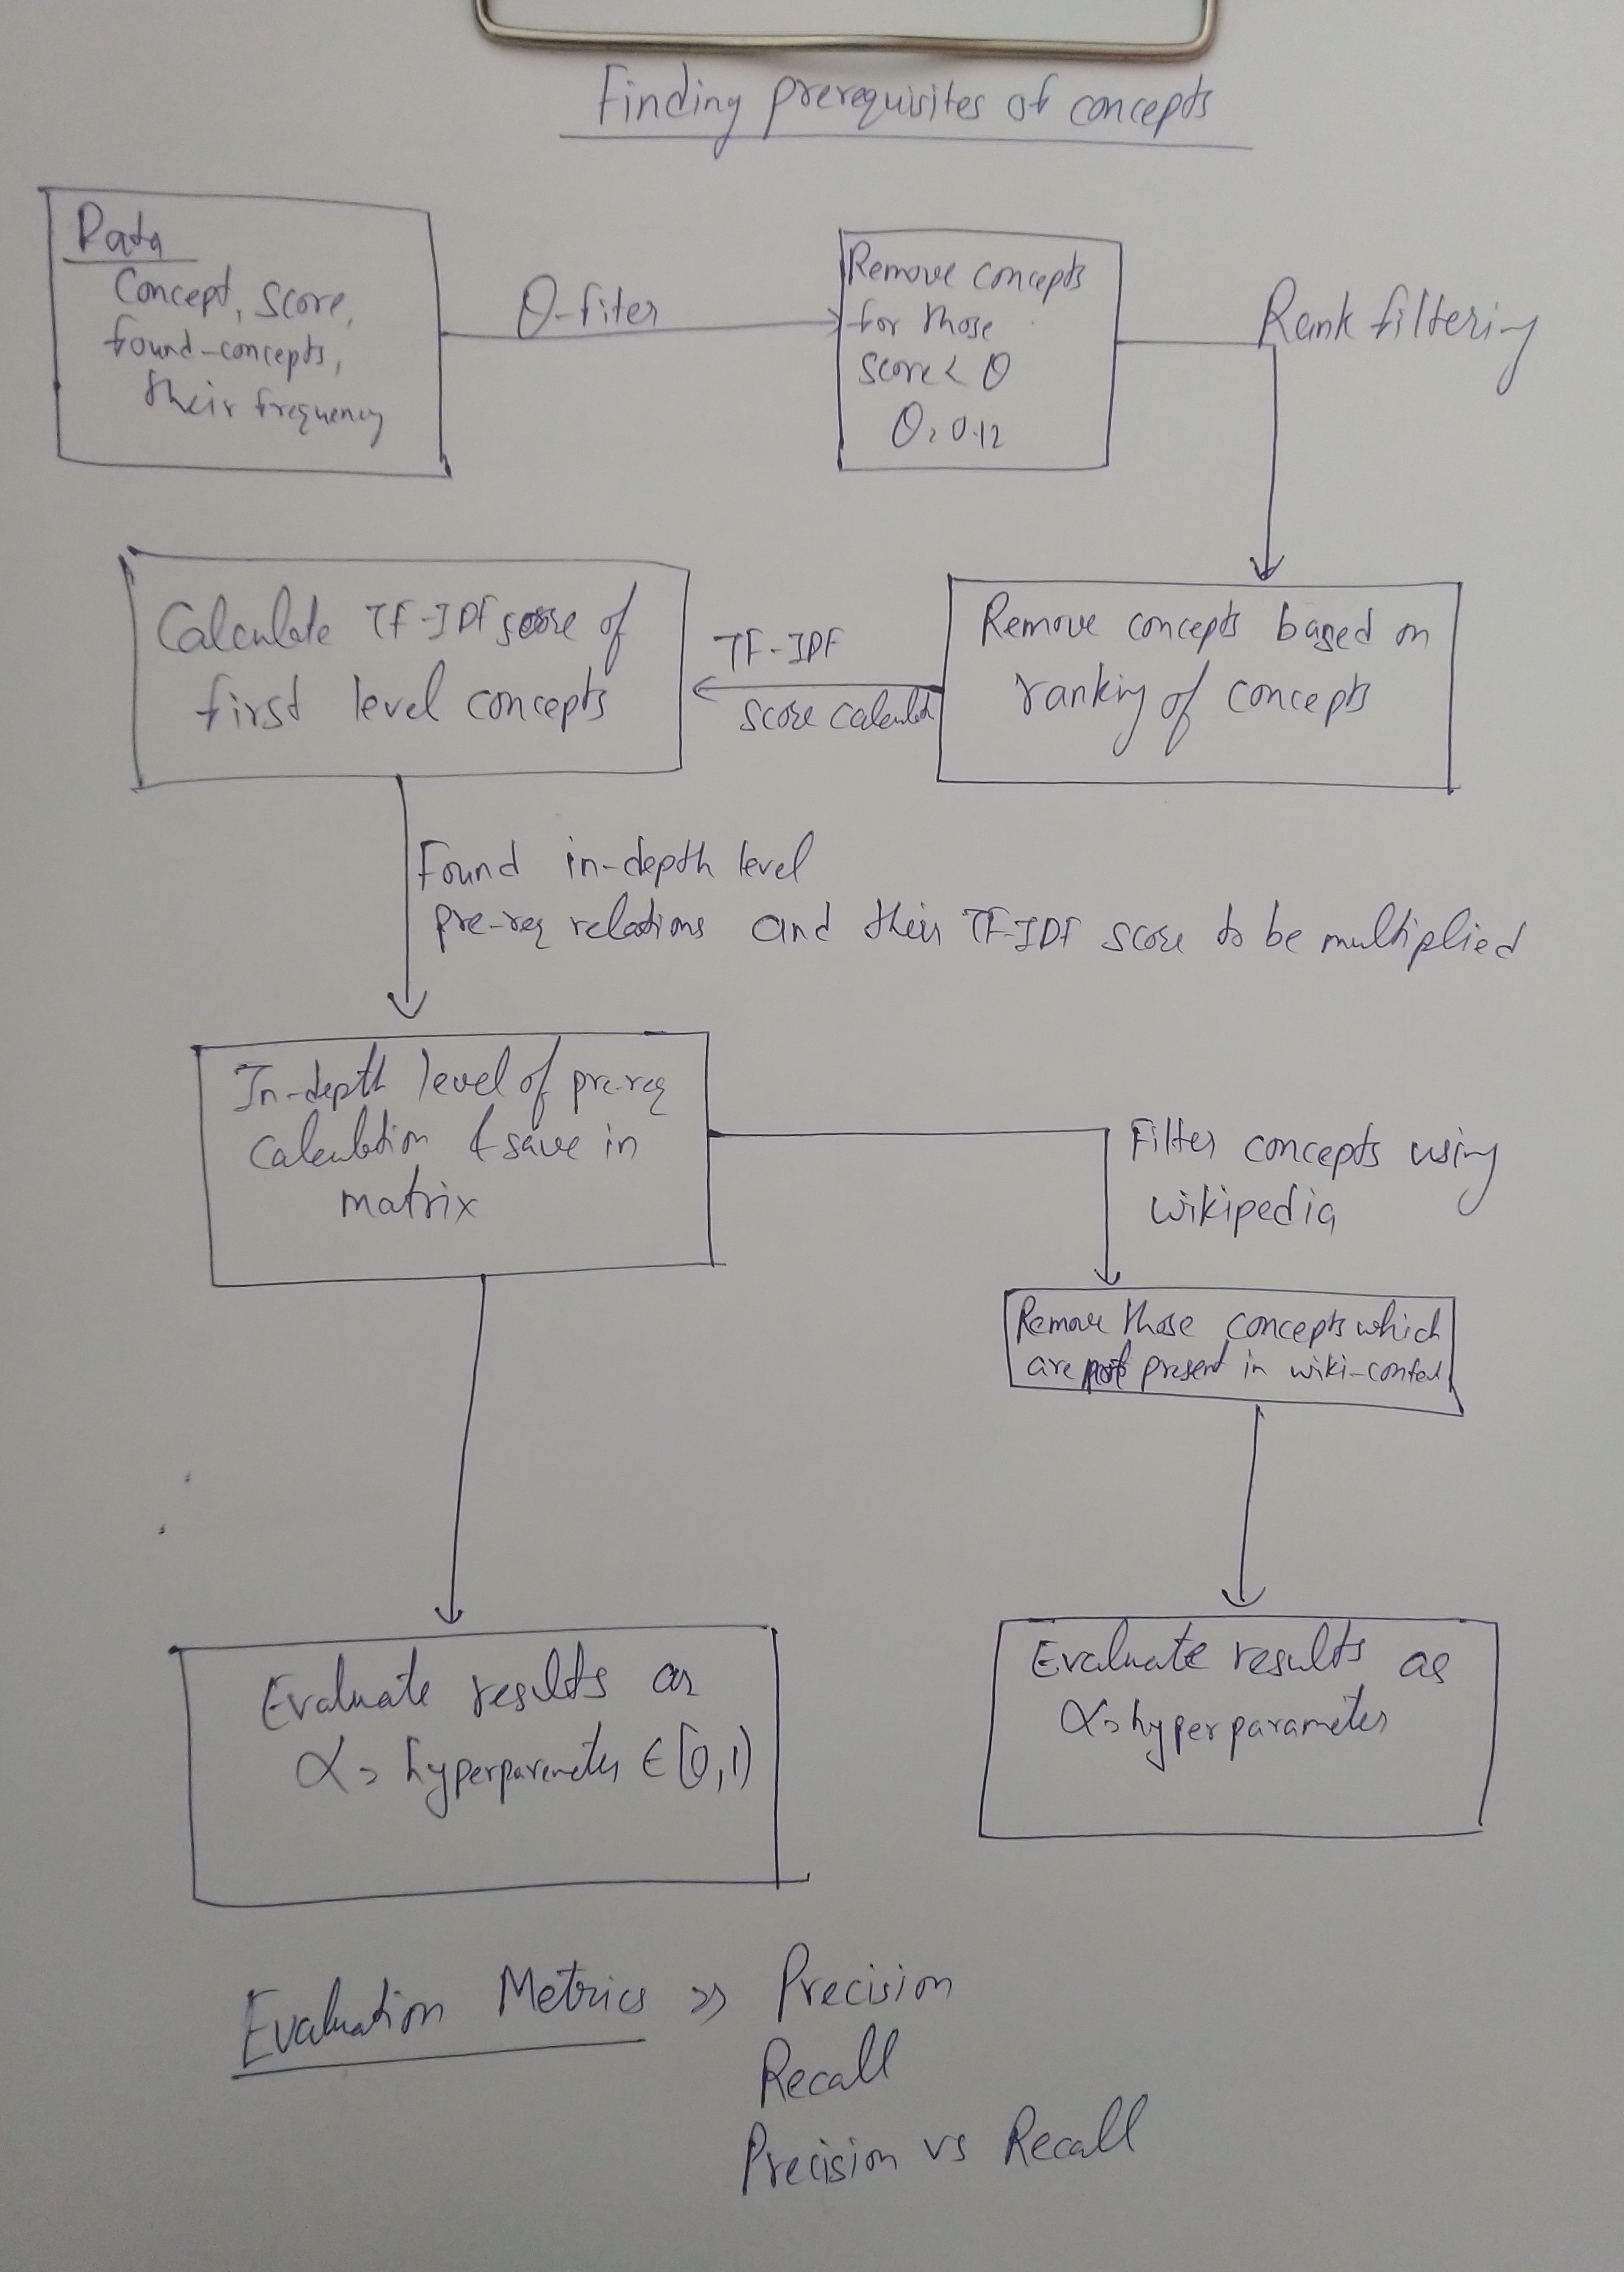 Finding prerequisites of concepts
Data
Concept, score,
found-concepts,
their frequency
θ-fiter
Remove concepts
for those
score < θ
θ = 0.12
Rank filtering
Remove concepts based on
ranking of concepts
TF-IDF
score calculat
Calculate TF-IDF score of
first level concepts
Found in-depth level
pre-req relations and their TF-IDF score to be multiplied
In-depth level of pre-req
calculation & save in
matrix
Filter concepts using
wikipedia
Remove those concepts which
are not present in wiki-content
Evaluate results as
α = hyperparameter ∈ [0,1)
Evaluate results as
α = hyperparameter
Evaluation Metrics >> Precision
Recall
Precision vs Recall